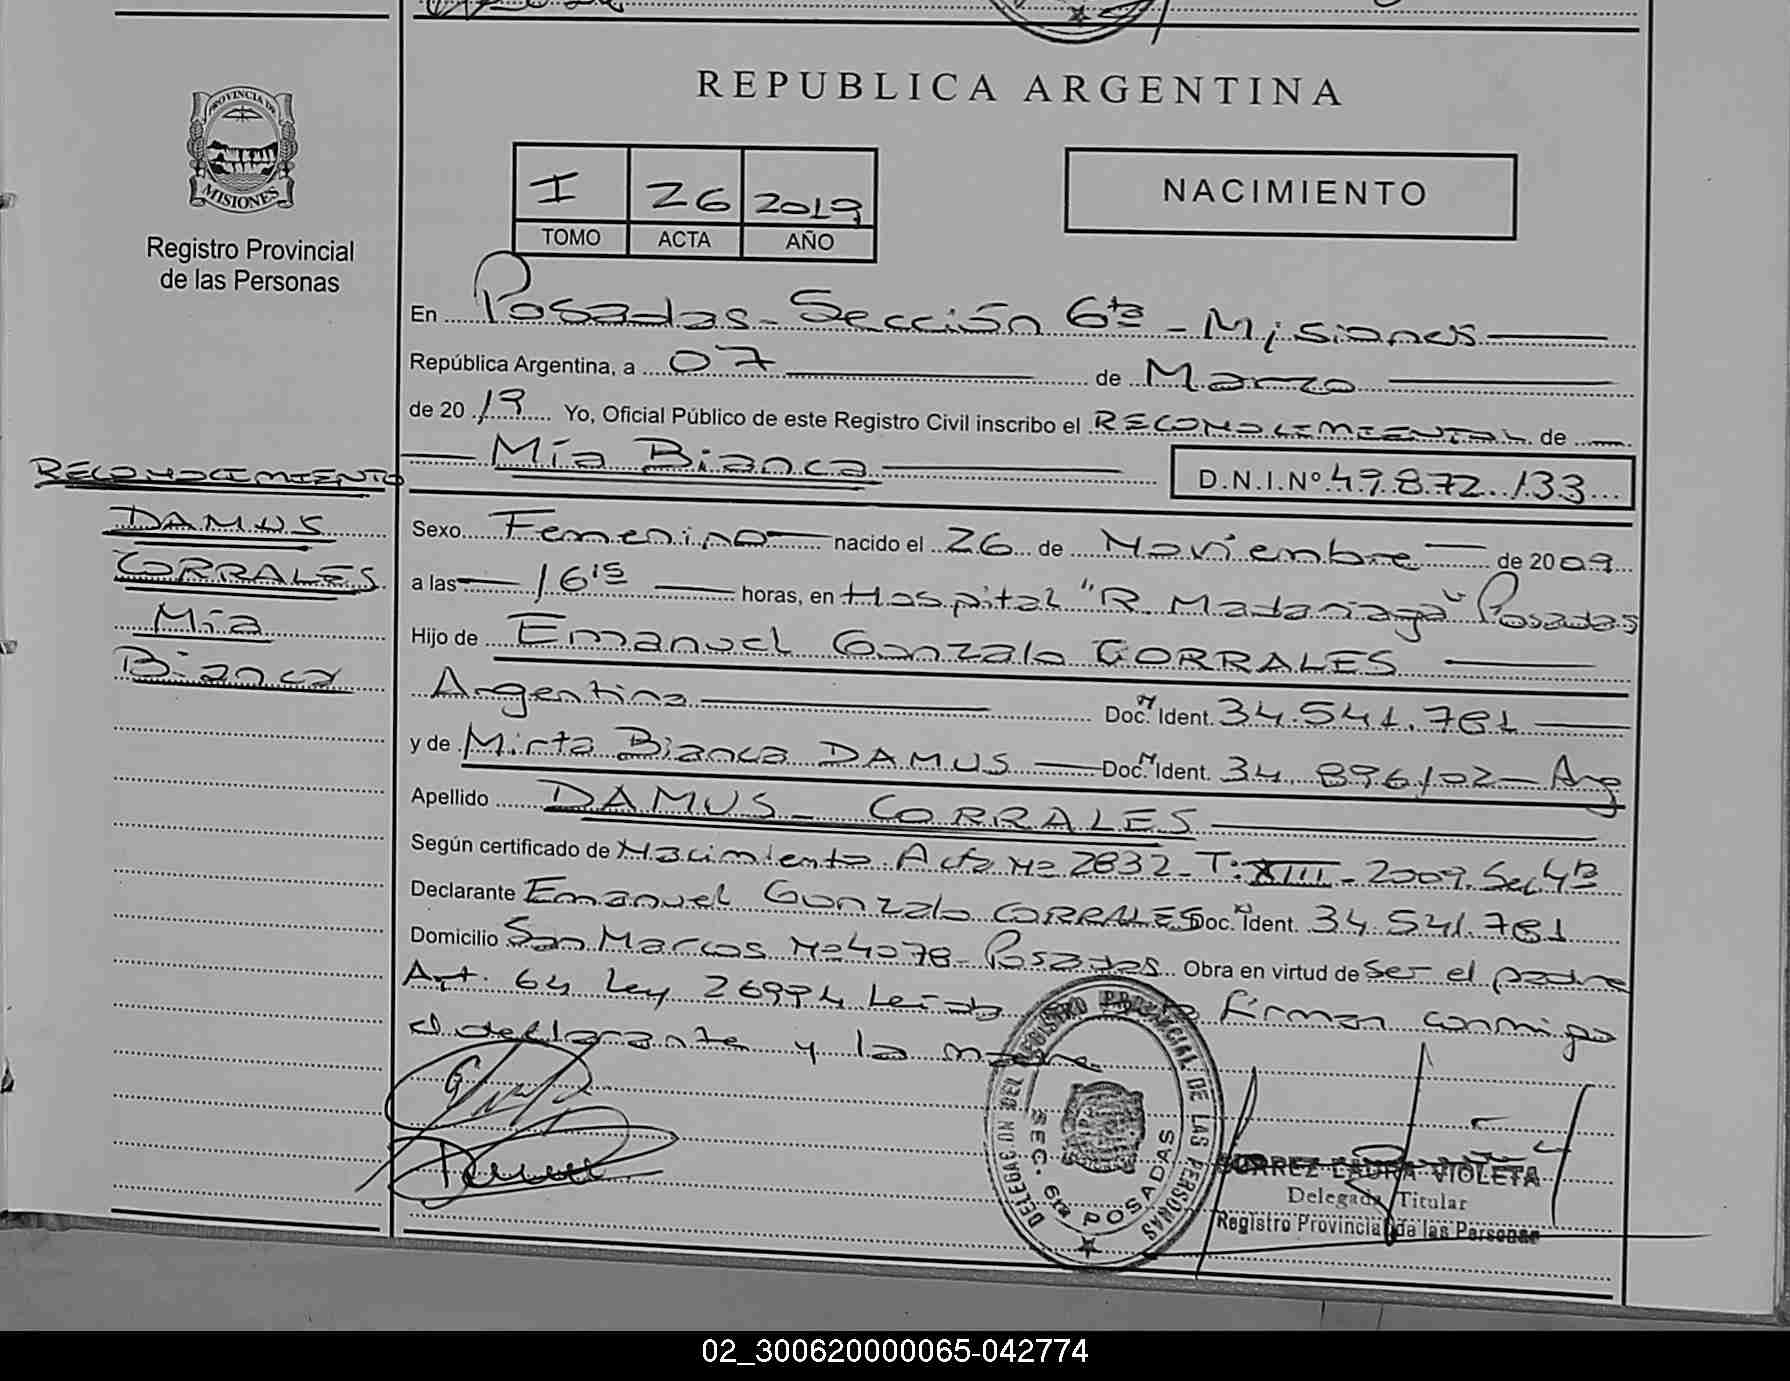 REPUBLICA ARGENTINA
PROVINCIA DE
MISIONES
Registro Provincial
de las Personas
I 26 2019
TOMO ACTA AÑO
NACIMIENTO
En Posadas - Sección 6ta - Misiones
República Argentina, a 07 de Marzo
de 2019 Yo, Oficial Público de este Registro Civil inscribo el RECONOCIMIENTO de
Mía Bianca D.N.I.Nº 49.872.133
RECONOCIMIENTO
DAMUS
CORRALES
Mía
Bianca
Sexo Femenino nacido el 26 de Noviembre de 2009
a las 16 15 horas, en Hospital "R. Madariaga" Posadas
Hijo de Emanuel Gonzalo CORRALES
Argentina Doc. Ident. 34.541.781
y de Mirta Bianca DAMUS Doc. Ident. 34.896.102 - Arg
Apellido DAMUS - CORRALES
Según certificado de Nacimiento Acta Nº 2832 - T: XIII - 2009. Sec 4ta
Declarante Emanuel Gonzalo CORRALES Doc. Ident. 34.541.781
Domicilio San Marcos Nº 4078 - Posadas Obra en virtud de ser el padre
Art. 64 Ley 26994 Leída firman conmigo
el declarante y la madre
DELEGACION DEL REGISTRO PROVINCIAL DE LAS PERSONAS
SEC. 6ta POSADAS
LAURA VIOLETA
Delegada Titular
Registro Provincial de las Personas
02_300620000065-042774